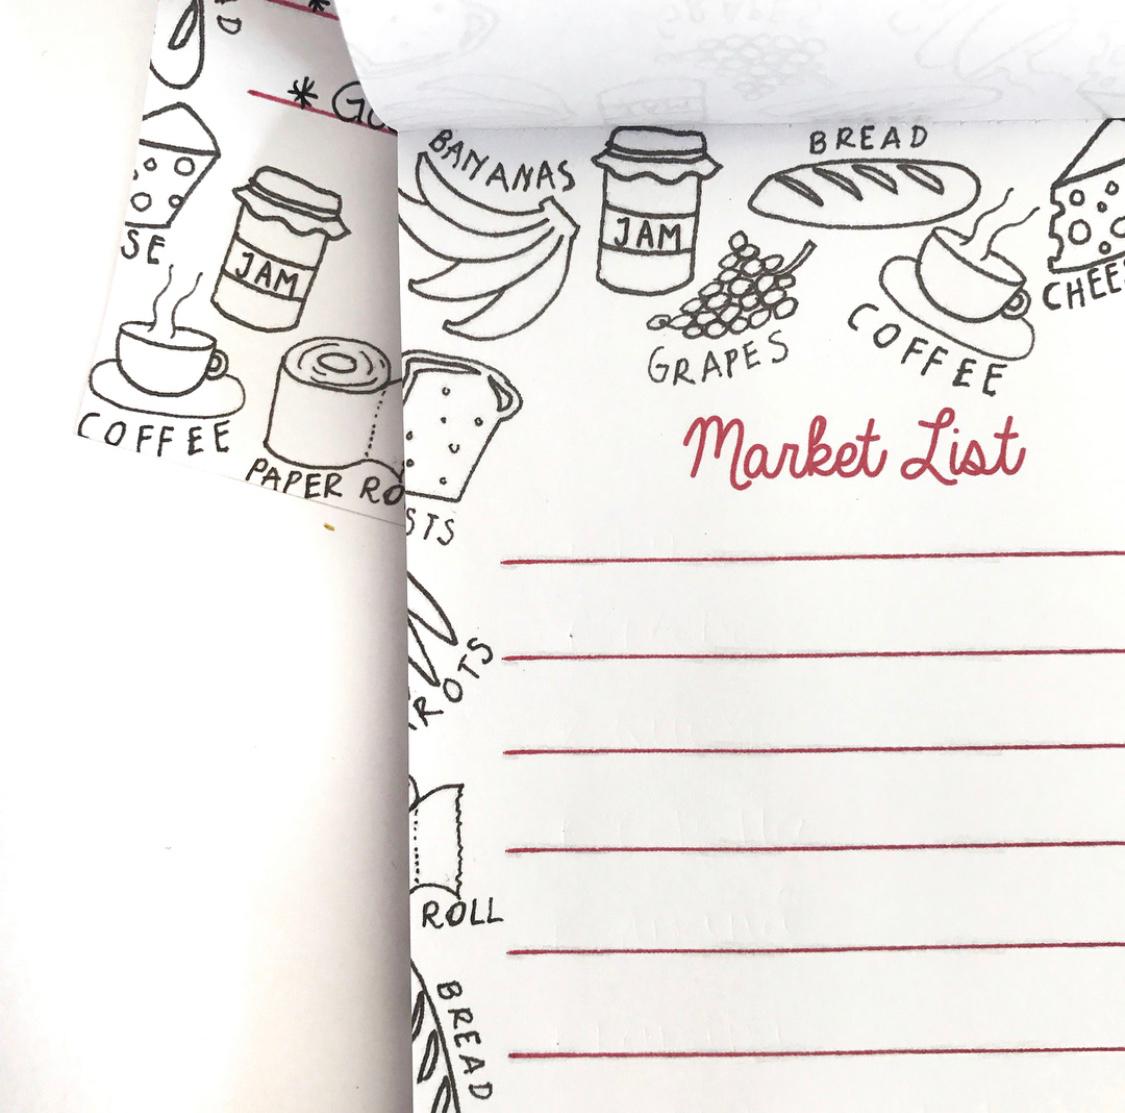 D
* Go
SE
JAM
COFFEE
PAPER RO
BANANAS
JAM
BREAD
GRAPES
COFFEE
CHEES
Market List
STS
ROTS
ROLL
BREAD